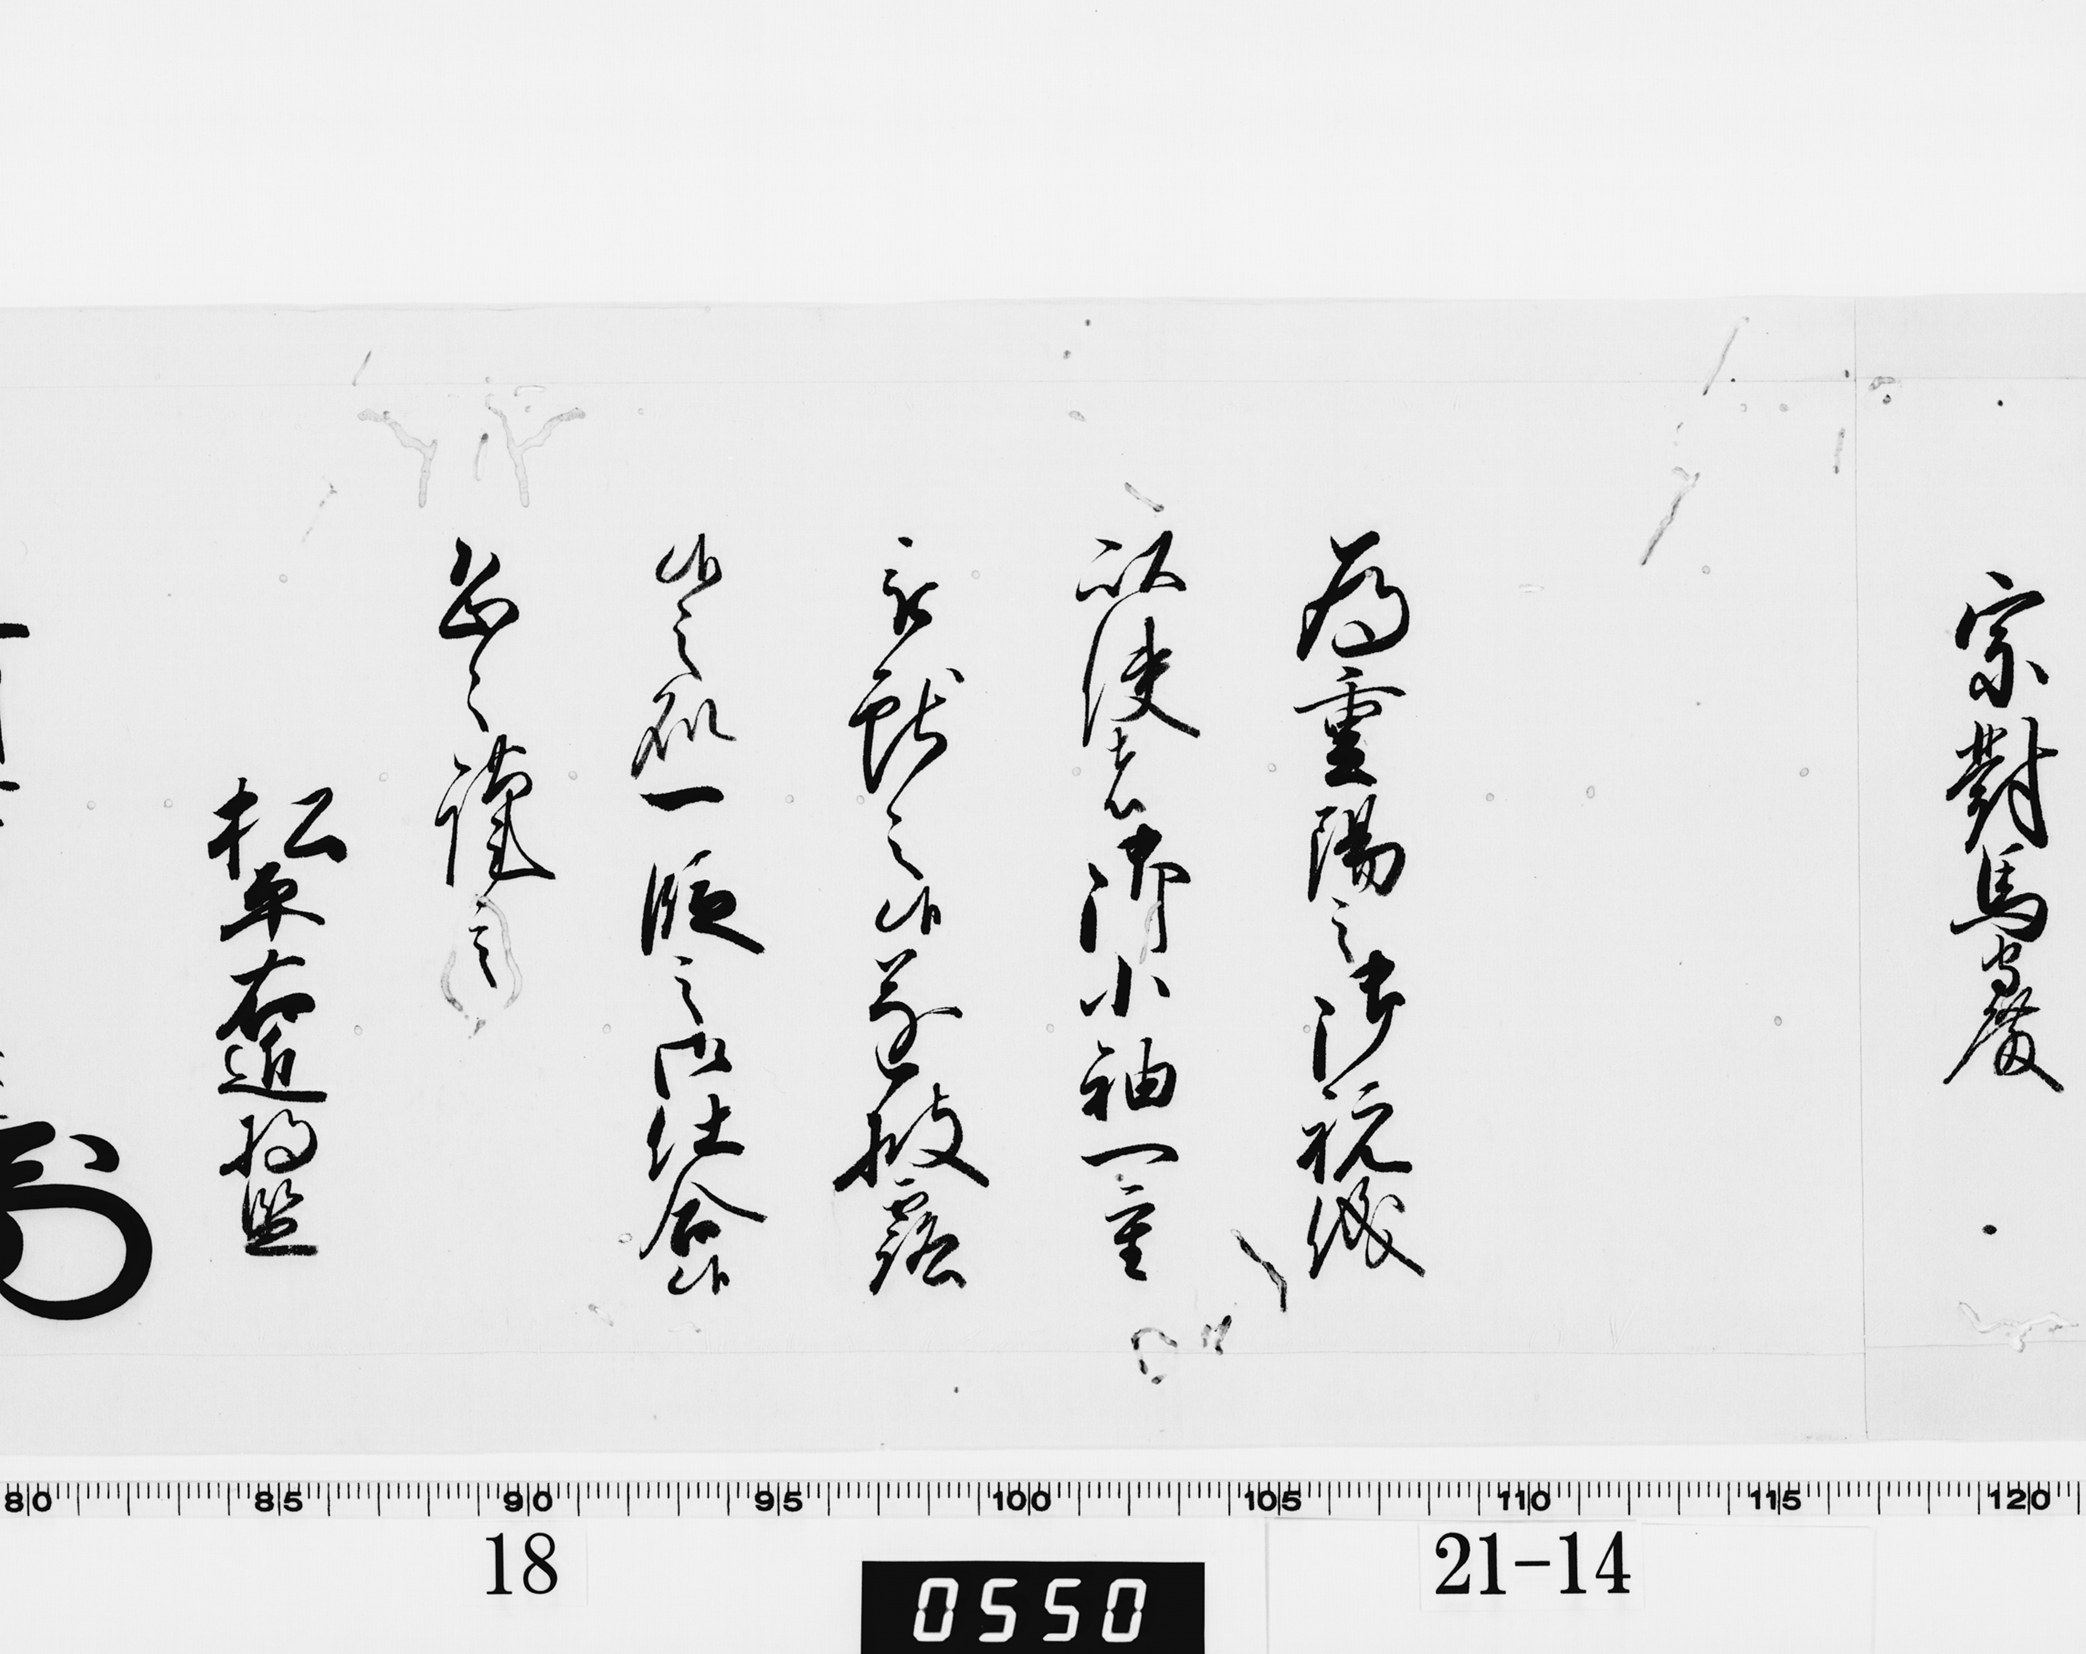 宗對馬守殿
為重陽之御祝儀
以使者御小袖一重
被献之候遂披露
候之処一段之御仕合候
恐々謹言
松平右近将監
80 85 90 95 100 105 110 115 120
18
21-14
0550